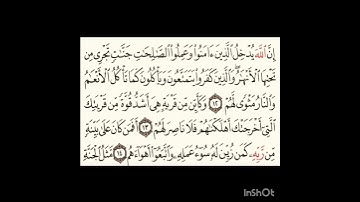 إِنَّ ٱللَّهَ يُدْخِلُ ٱلَّذِينَ ءَامَنُوا۟ وَعَمِلُوا۟ ٱلصَّـٰلِحَـٰتِ جَنَّـٰتٍ تَجْرِى مِن
تَحْتِهَا ٱلْأَنْهَـٰرُ ۖ وَٱلَّذِينَ كَفَرُوا۟ يَتَمَتَّعُونَ وَيَأْكُلُونَ كَمَا تَأْكُلُ ٱلْأَنْعَـٰمُ
وَٱلنَّارُ مَثْوًى لَّهُمْ ١٢ وَكَأَيِّن مِّن قَرْيَةٍ هِىَ أَشَدُّ قُوَّةً مِّن قَرْيَتِكَ
ٱلَّتِىٓ أَخْرَجَتْكَ أَهْلَكْنَـٰهُمْ فَلَا نَاصِرَ لَهُمْ ١٣ أَفَمَن كَانَ عَلَىٰ بَيِّنَةٍ
مِّن رَّبِّهِۦ كَمَن زُيِّنَ لَهُۥ سُوٓءُ عَمَلِهِۦ وَٱتَّبَعُوٓا۟ أَهْوَآءَهُم ١٤ مَّثَلُ ٱلْجَنَّةِ
InShOt